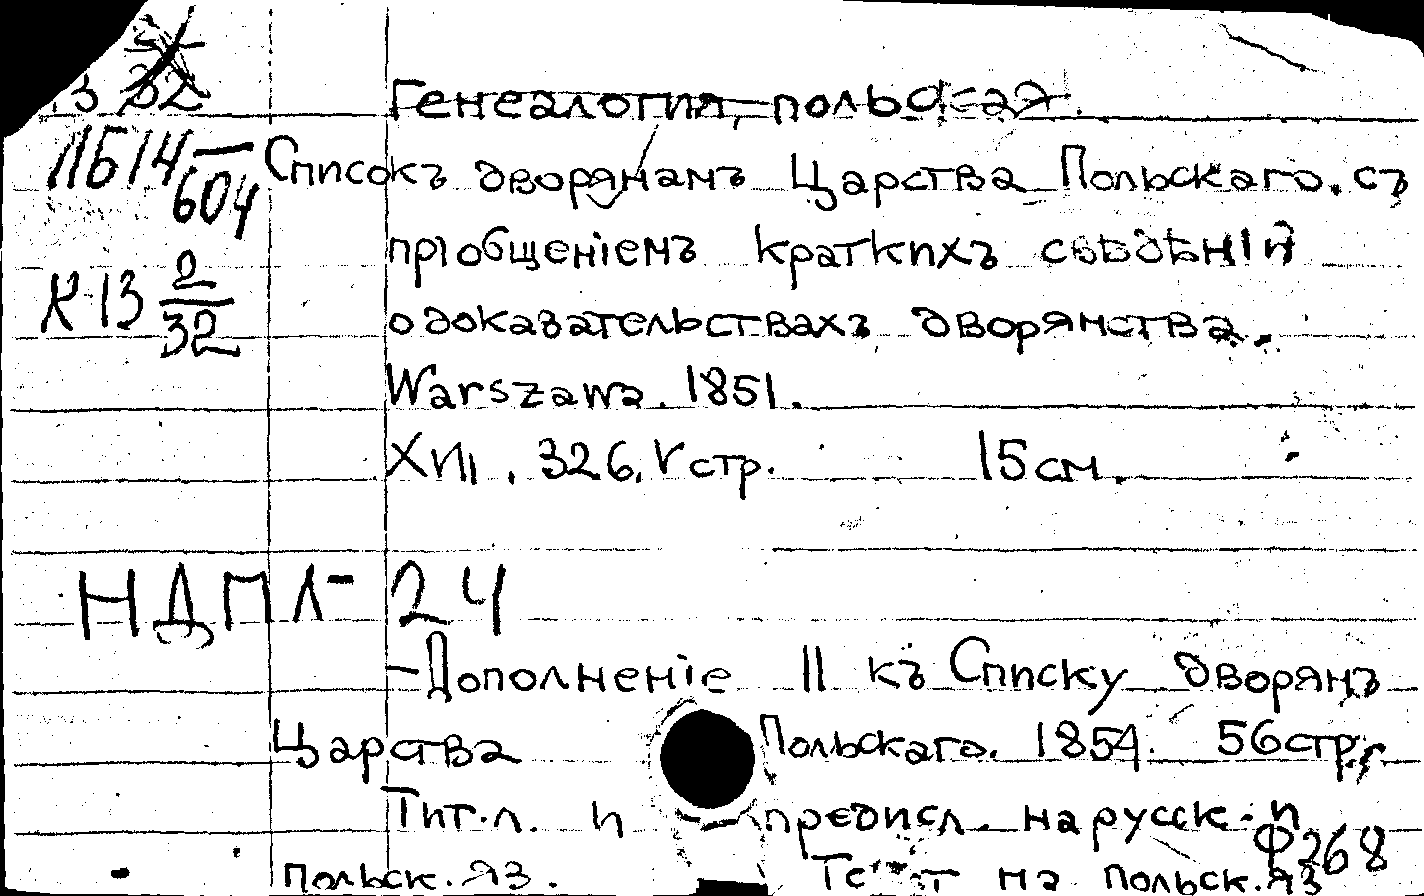 32
~~Генеалогия польская.~~
ЛБ14—604
Списокъ дворянамъ Царства Польскаго. съ
пріобщеніемъ краткихъ свѣдѣній
К 13 2/32
о доказательствахъ дворянства.
Warszawa. 1851.
XVII, 326, V стр. 15 см.
НДПЛ-24
-Дополненіе II къ Списку дворянъ
Царства Польскаго. 1854. 56 стр.
Тит. л. и предисл. на русск. и
Ф268
польск. яз. Текст на польск. яз